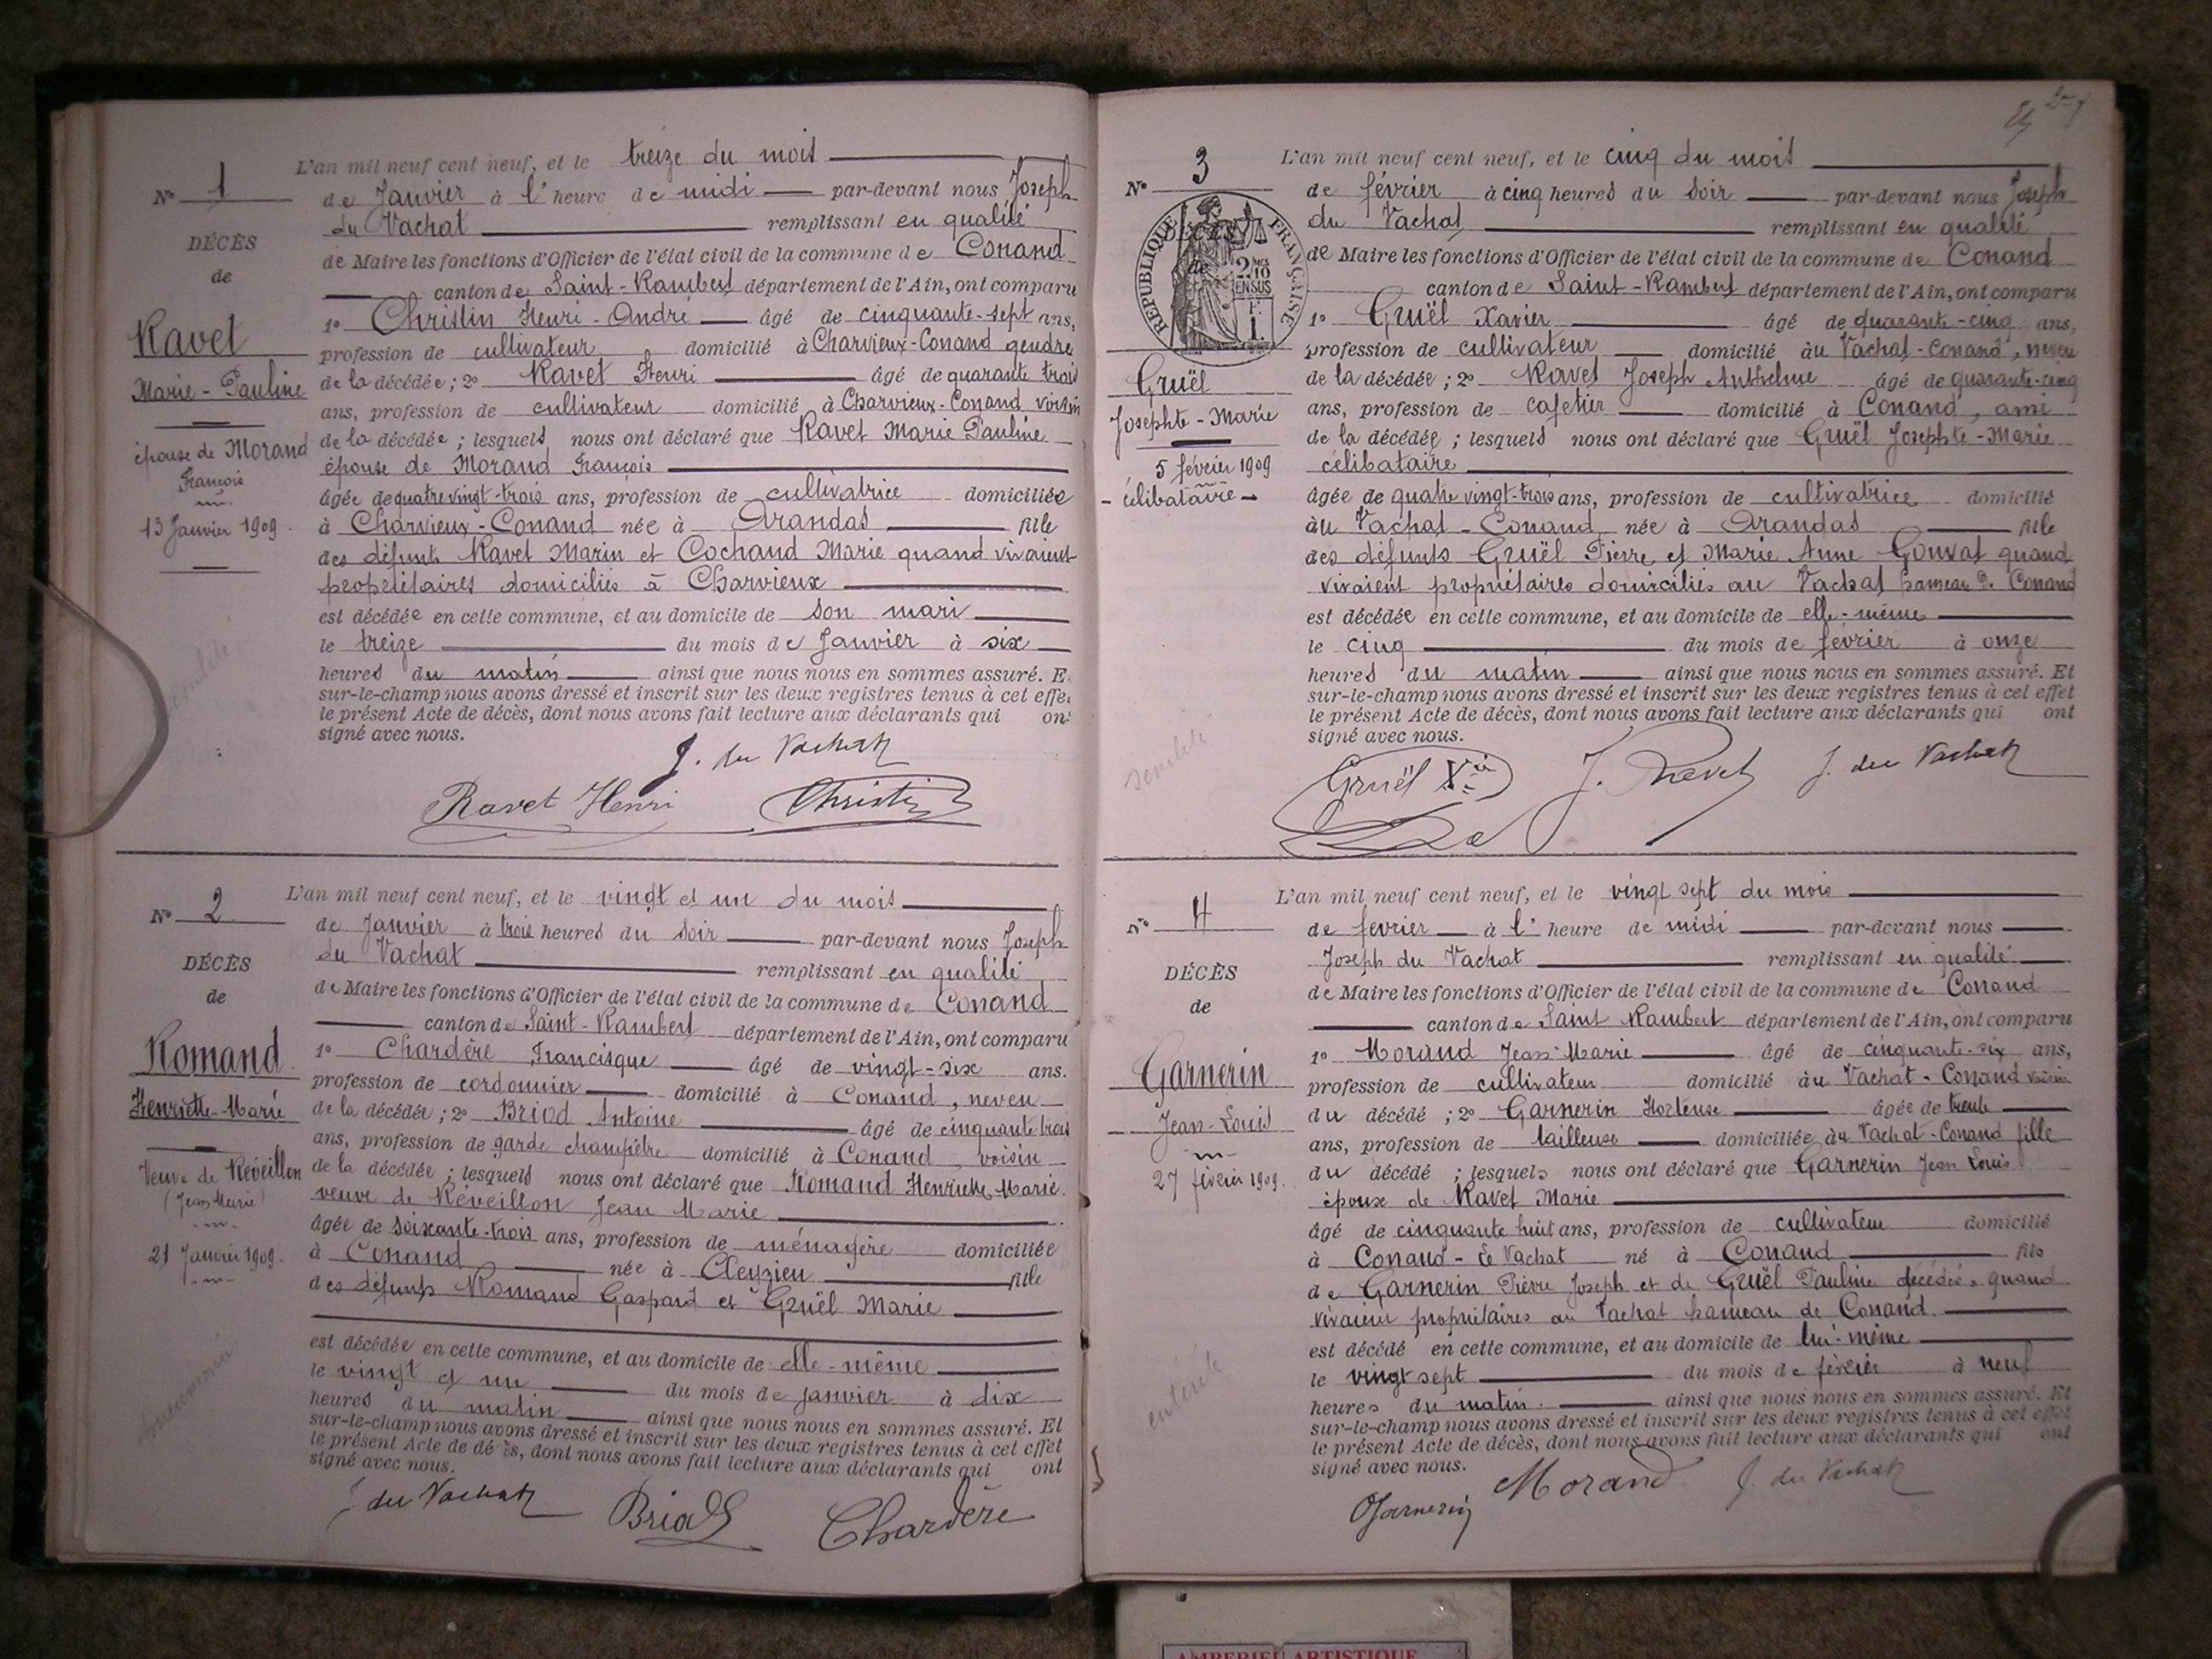 N° 1
DÉCÈS
de
Ravet
Marie-Pauline
épouse de Morand
François
13 Janvier 1909.
L'an mil neuf cent neuf, et le treize du mois
de Janvier à l'heure de midi par-devant nous Joseph
du Vachat remplissant en qualité
de Maire les fonctions d'Officier de l'état civil de la commune de Conand
canton de Saint-Rambert département de l'Ain, ont comparu
1° Christin Henri-André âgé de cinquante-sept ans,
profession de cultivateur domicilié à Charvieux-Conand gendre
de la décédée; 2° Ravet Henri âgé de quarante trois
ans, profession de cultivateur domicilié à Charvieux-Conand voisin
de la décédée; lesquels nous ont déclaré que Ravet Marie Pauline
épouse de Morand François
âgée de quatre vingt-trois ans, profession de cultivatrice domiciliée
à Charvieux-Conand née à Arandas fille
des défunts Ravet Marin et Cochand Marie quand vivaient
propriétaires domiciliés à Charvieux
est décédée en cette commune, et au domicile de son mari
le treize du mois de Janvier à six
heures du matin ainsi que nous nous en sommes assuré. E
sur-le-champ nous avons dressé et inscrit sur les deux registres tenus à cet effe
le présent Acte de décès, dont nous avons fait lecture aux déclarants qui on
signé avec nous.
J. du Vachat
Ravet Henri Christin
N° 2
DÉCÈS
de
Romand
Henriette-Marie
Veuve de Réveillon
(Jean Marie)
21 Janvier 1909.
L'an mil neuf cent neuf, et le vingt et un du mois
de Janvier à trois heures du soir par-devant nous Joseph
du Vachat remplissant en qualité
de Maire les fonctions d'Officier de l'état civil de la commune de Conand
canton de Saint-Rambert département de l'Ain, ont comparu
1° Chardère Francisque âgé de vingt-six ans.
profession de cordonnier domicilié à Conand, neveu
de la décédée; 2° Briod Antoine âgé de cinquante trois
ans, profession de garde champêtre domicilié à Conand, voisin
de la décédée; lesquels nous ont déclaré que Romand Henriette-Marie
veuve de Réveillon Jean Marie
âgée de soixante-trois ans, profession de ménagère domiciliée
à Conand née à Cleyzieu fille
des défunts Romand Gaspard et Gruël Marie
est décédée en cette commune, et au domicile de elle-même
le vingt et un du mois de janvier à dix
heures du matin ainsi que nous nous en sommes assuré. Et
sur-le-champ nous avons dressé et inscrit sur les deux registres tenus à cet effet
le présent Acte de dé ès, dont nous avons fait lecture aux déclarants qui ont
signé avec nous.
J. du Vachat Briod Chardère
N° 3
DÉCÈS
de
RÉPUBLIQUE FRANÇAISE
2 MES 10
EN SUS
F. 1
Gruël
Josephte-Marie
5 février 1909
célibataire
senilité
L'an mil neuf cent neuf, et le cinq du mois
de février à cinq heures du soir par-devant nous Joseph
du Vachat remplissant en qualité
de Maire les fonctions d'Officier de l'état civil de la commune de Conand
canton de Saint-Rambert département de l'Ain, ont comparu
1° Gruël Xavier âgé de quarante-cinq ans,
profession de cultivateur domicilié au Vachat-Conand, neveu
de la décédée; 2° Ravet Joseph Anthelme âgé de quarante-cinq
ans, profession de cafetier domicilié à Conand, ami
de la décédée; lesquels nous ont déclaré que Gruël Josephte-Marie
célibataire
âgée de quatre vingt-trois ans, profession de cultivatrice domicilié
au Vachat-Conand née à Arandas fille
des défunts Gruël Pierre et Marie Anne Gonvat quand
vivaient propriétaires domiciliés au Vachat hameau de Conand
est décédée en cette commune, et au domicile de elle-même
le cinq du mois de février à onze
heures du matin ainsi que nous nous en sommes assuré. Et
sur-le-champ nous avons dressé et inscrit sur les deux registres tenus à cet effet
le présent Acte de décès, dont nous avons fait lecture aux déclarants qui ont
signé avec nous.
Gruël Xer J. Ravet J. du Vachat
N° 4
DÉCÈS
de
Garnerin
Jean-Louis
27 février 1909.
entérite
L'an mil neuf cent neuf, et le vingt sept du mois
de fevrier à l'heure de midi par-devant nous
Joseph du Vachat remplissant en qualité
de Maire les fonctions d'Officier de l'état civil de la commune de Conand
canton de Saint Rambert département de l'Ain, ont comparu
1° Morand Jean-Marie âgé de cinquante-six ans,
profession de cultivateur domicilié au Vachat-Conand voisin
du décédé; 2° Garnerin Hortense âgée de trente
ans, profession de tailleuse domiciliée au Vachat-Conand fille
du décédé; lesquels nous ont déclaré que Garnerin Jean Louis
époux de Ravet Marie
âgé de cinquante huit ans, profession de cultivateur domicilié
à Conand-Le Vachat né à Conand fils
de Garnerin Pierre Joseph et de Gruël Pauline décédés quand
vivaient propriétaires au Vachat hameau de Conand.
est décédé en cette commune, et au domicile de lui-même
le vingt sept du mois de février à neuf
heures du matin. ainsi que nous nous en sommes assuré. Et
sur-le-champ nous avons dressé et inscrit sur les deux registres tenus à cet effet
le présent Acte de décès, dont nous avons fait lecture aux déclarants qui ont
signé avec nous.
Garnerin Morand J. du Vachat
AMBERIEU ARTISTIQUE